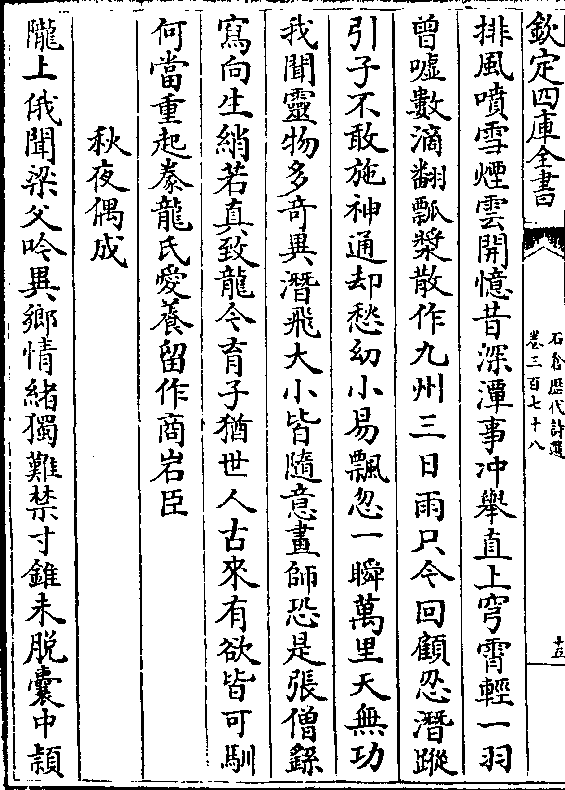 欽定四庫全書
石倉歷代詩選
卷三百七十八
十五
排風噴雪煙雲開憶昔深潭事冲舉直上穹霄輕一羽
曾噓數滴翻瓢漿散作九州三日雨只今回顧忍潛蹤
引子不敢施神通却愁幼小易飄忽一瞬萬里天無功
我聞靈物多奇異潛飛大小皆隨意畫師恐是張僧繇
寫向生綃若真致龍今育子猶世人古來有欲皆可馴
何當重起豢龍氏愛養留作商岩臣
秋夜偶成
隴上俄聞梁父吟異鄉情緒獨難禁寸錐未脫囊中穎